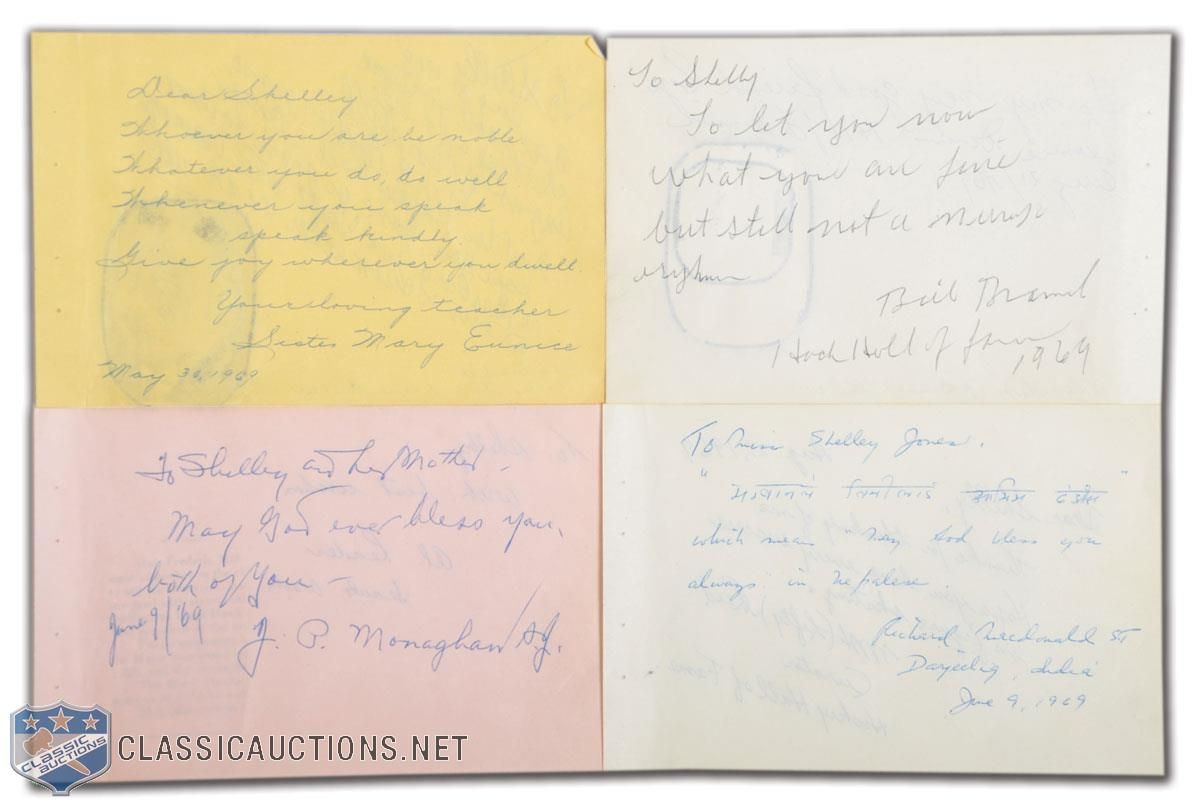 Dear Shelley
Whoever you are, be noble
Whatever you do, do well
Whenever you speak
speak kindly.
Give joy wherever you dwell.
Your loving teacher
Sister Mary Eunice
May 30, 1969
To Shelly
To let you now
what you are fine
but still not a
Bill
Hock Hall of fame
1969
To Shelley and her Mother -
May God ever bless you,
both of you -
June 9/'69
J. P. Monaghan SJ.
To Miss Shelley Jones.
which means "May God bless you
always" in Nepalese.
Richard MacDonald SJ
Darjeeling, India
June 9, 1969
CLASSIC
AUCTIONS
CLASSICAUCTIONS.NET